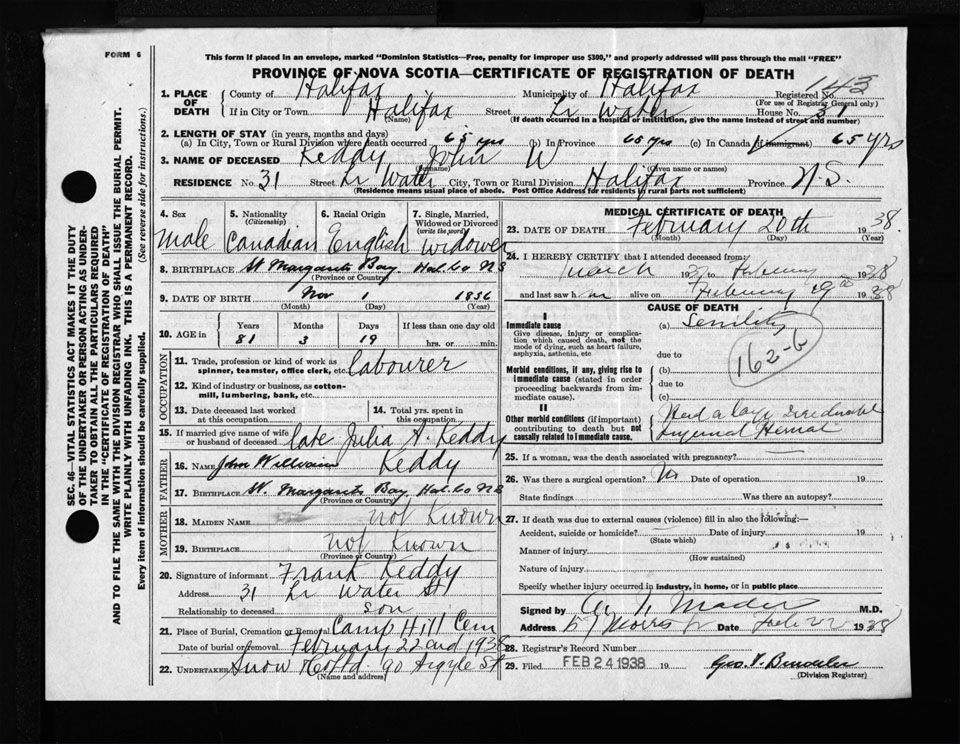 FORM 6
This form if placed in an envelope, marked "Dominion Statistics—Free, penalty for improper use $300," and properly addressed will pass through the mail "FREE"
PROVINCE OF NOVA SCOTIA—CERTIFICATE OF REGISTRATION OF DEATH
1. PLACE OF DEATH
County of Halifax Municipality of Halifax Registered No. 143
(For use of Registrar General only)
If in City or Town Halifax Street Lr Water House No. 31
(Name) (If death occurred in a hospital or institution, give the name instead of street and number)
2. LENGTH OF STAY (in years, months and days)
(a) In City, Town or Rural Division where death occurred 65 yrs (b) In Province 65 yrs (c) In Canada (if immigrant) 65 yrs
3. NAME OF DECEASED Keddy John W
(Surname) (Given name or names)
RESIDENCE No. 31 Street Lr Water City, Town or Rural Division Halifax Province N.S.
(Residence means usual place of abode. Post Office Address for residents in rural parts not sufficient)
4. Sex 5. Nationality 6. Racial Origin 7. Single, Married, Widowed or Divorced
(Citizenship) (write the word)
Male Canadian English Widower
8. BIRTHPLACE St Margarets Bay Hal. Co NS
(Province or Country)
9. DATE OF BIRTH Nov 1 1856
(Month) (Day) (Year)
10. AGE in Years Months Days If less than one day old
81 3 19 hrs. or min.
OCCUPATION
11. Trade, profession or kind of work as spinner, teamster, office clerk, etc. labourer
12. Kind of industry or business, as cotton-mill, lumbering, bank, etc.
13. Date deceased last worked at this occupation 14. Total yrs. spent in this occupation
15. If married give name of wife or husband of deceased late Julia A. Keddy
FATHER
16. NAME John William Keddy
17. BIRTHPLACE St. Margarets Bay Hal. Co NS
(Province or Country)
MOTHER
18. MAIDEN NAME not Known
19. BIRTHPLACE not Known
(Province or Country)
20. Signature of informant Frank Keddy
Address 31 Lr Water St
Relationship to deceased son
21. Place of Burial, Cremation or Removal Camp Hill Cem
Date of burial or removal February 22nd 1938
22. UNDERTAKER Snow & Co Ltd. 90 Argyle St
(Name and address)
MEDICAL CERTIFICATE OF DEATH
23. DATE OF DEATH February 20th 1938
(Month) (Day) (Year)
24. I HEREBY CERTIFY that I attended deceased from:
March 1937 to February 1938
and last saw him alive on February 19 1938
CAUSE OF DEATH
I
Immediate cause
Give disease, injury or complication which caused death, not the mode of dying, such as heart failure, asphyxia, asthenia, etc
(a) Senility
due to
162-b
Morbid conditions, if any, giving rise to immediate cause (stated in order proceeding backwards from immediate cause).
(b)
due to
(c)
II
Other morbid conditions (if important) contributing to death but not causally related to immediate cause.
Had a large Irreducible
Inguinal Hernia
25. If a woman, was the death associated with pregnancy?
26. Was there a surgical operation? No Date of operation 19
State findings Was there an autopsy?
27. If death was due to external causes (violence) fill in also the following:—
Accident, suicide or homicide? Date of injury 19
(State which)
Manner of injury
(How sustained)
Nature of injury
Specify whether injury occurred in industry, in home, or in public place
Signed by Mader M.D.
Address 57 Morris St Date Feb 22 1938
28. Registrar's Record Number
29. Filed FEB 24 1938 19
(Division Registrar)
SEC. 46—VITAL STATISTICS ACT MAKES IT THE DUTY
OF THE UNDERTAKER OR PERSON ACTING AS UNDER-
TAKER TO OBTAIN ALL THE PARTICULARS REQUIRED
IN THE "CERTIFICATE OF REGISTRATION OF DEATH"
AND TO FILE THE SAME WITH THE DIVISION REGISTRAR WHO SHALL ISSUE THE BURIAL PERMIT.
WRITE PLAINLY WITH UNFADING INK. THIS IS A PERMANENT RECORD.
Every item of information should be carefully supplied. (See reverse side for instructions.)